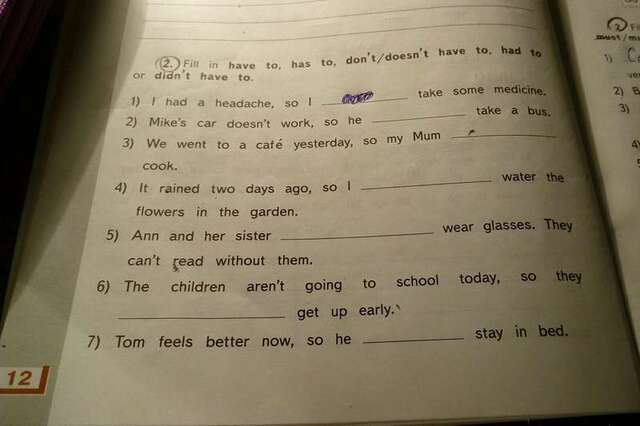 2. Fill in have to, has to, don't/doesn't have to, had to
or didn't have to.
1) I had a headache, so I ____________ take some medicine.
2) Mike's car doesn't work, so he ____________ take a bus.
3) We went to a café yesterday, so my Mum ____________
cook.
4) It rained two days ago, so I ____________ water the
flowers in the garden.
5) Ann and her sister ____________ wear glasses. They
can't read without them.
6) The children aren't going to school today, so they
____________ get up early.
7) Tom feels better now, so he ____________ stay in bed.
12
2
must/
1)
2) B
3)